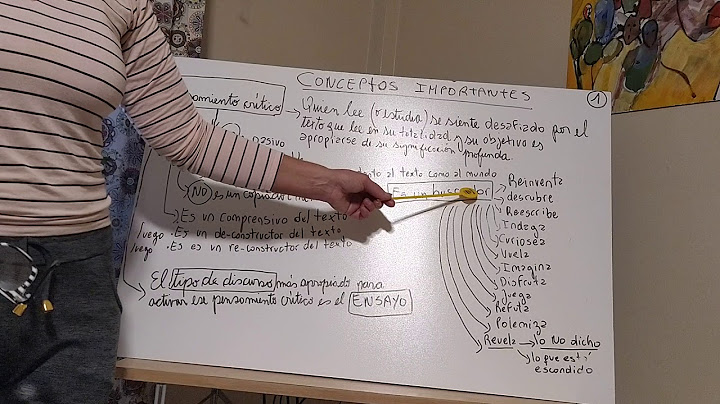 CONCEPTOS IMPORTANTES
1
crítico
Quien lee (o estudia) se siente desafiado por el
texto que lee en su totalidad y su objetivo es
apropiarse de su significación profunda.
pasivo
al texto como al mundo
Es un buscador
NO es un copia
Es un comprensivo del texto
luego • Es un de-constructor del texto
luego • Es es un re-constructor del texto
El tipo de discurso más apropiado para
activar ese pensamiento crítico es el ENSAYO
Reinventa
descubre
Reescribe
Indaga
Curiosea
Vuela
Imagina
Disfruta
Juega
Refuta
Polemiza
Revela → lo NO dicho
lo que está
escondido